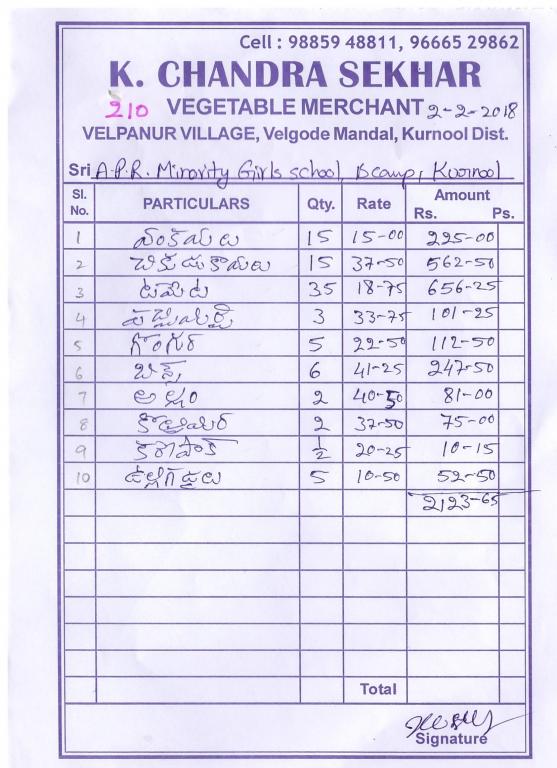 Cell : 98859 48811, 96665 29862
K. CHANDRA SEKHAR
210 VEGETABLE MERCHANT 2-2-2018
VELPANUR VILLAGE, Velgode Mandal, Kurnool Dist.
Sri A.P.R. Minority Girls school, Bcamp, Kurnool
Sl. No. PARTICULARS Qty. Rate Amount Rs. Ps.
1 వంకాయలు 15 15-00 225-00
2 చికుడుకాయలు 15 37-50 562-50
3 టమేట 35 18-75 656-25
4 3 33-75 101-25
5 గోంగుర 5 22-50 112-50
6 బీన్స్ 6 41-25 247-50
7 అల్లం 2 40-50 81-00
8 2 37-50 75-00
9 ½ 20-25 10-15
10 ఉల్లిగడ్డలు 5 10-50 52-50
2123-65
Total
Signature